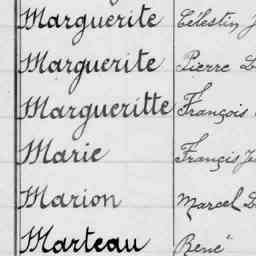 Marguerite Célestin
Marguerite Pierre
Margueritte François
Marie Francis
Marion Marcel
Marteau René